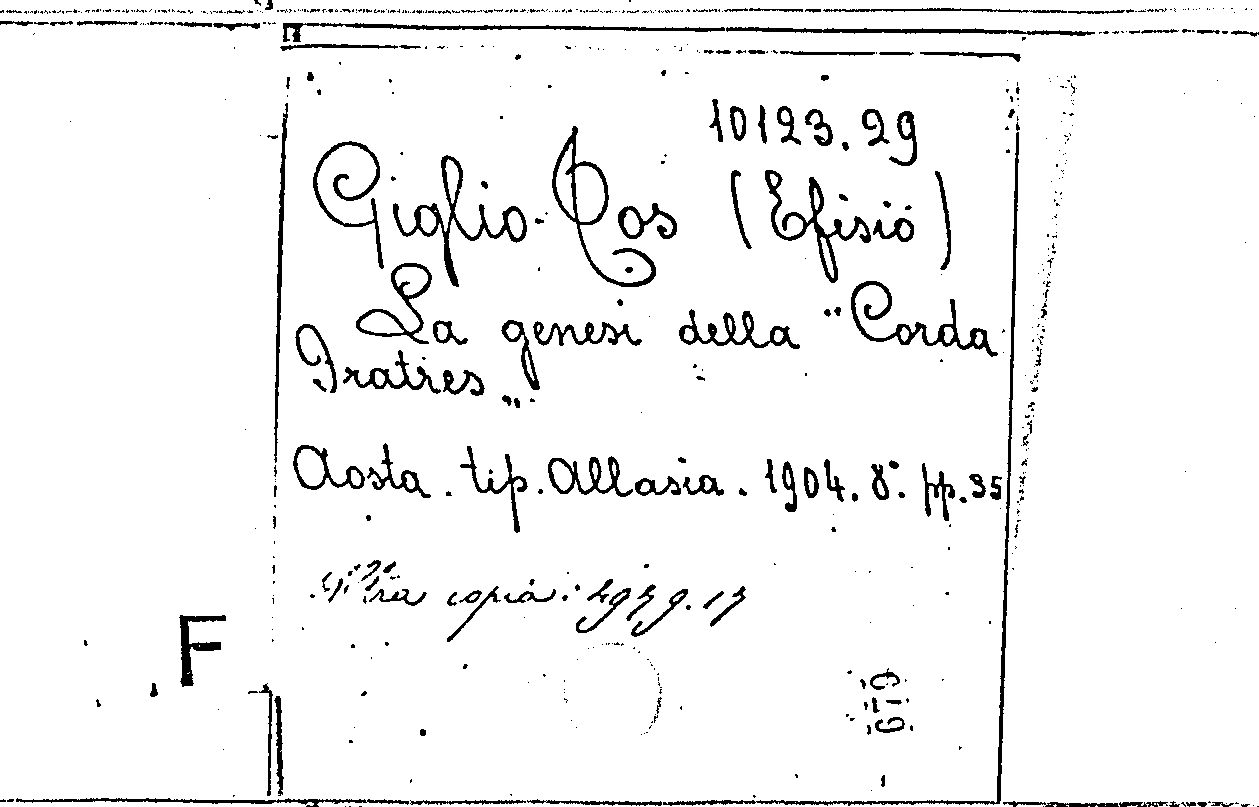 10123.29
Giglio-Tos (Efisio)
La genesi della "Corda
Fratres„.
Aosta. tip. Allasia. 1904. 8°. pp. 35
Altra copia:
F
679